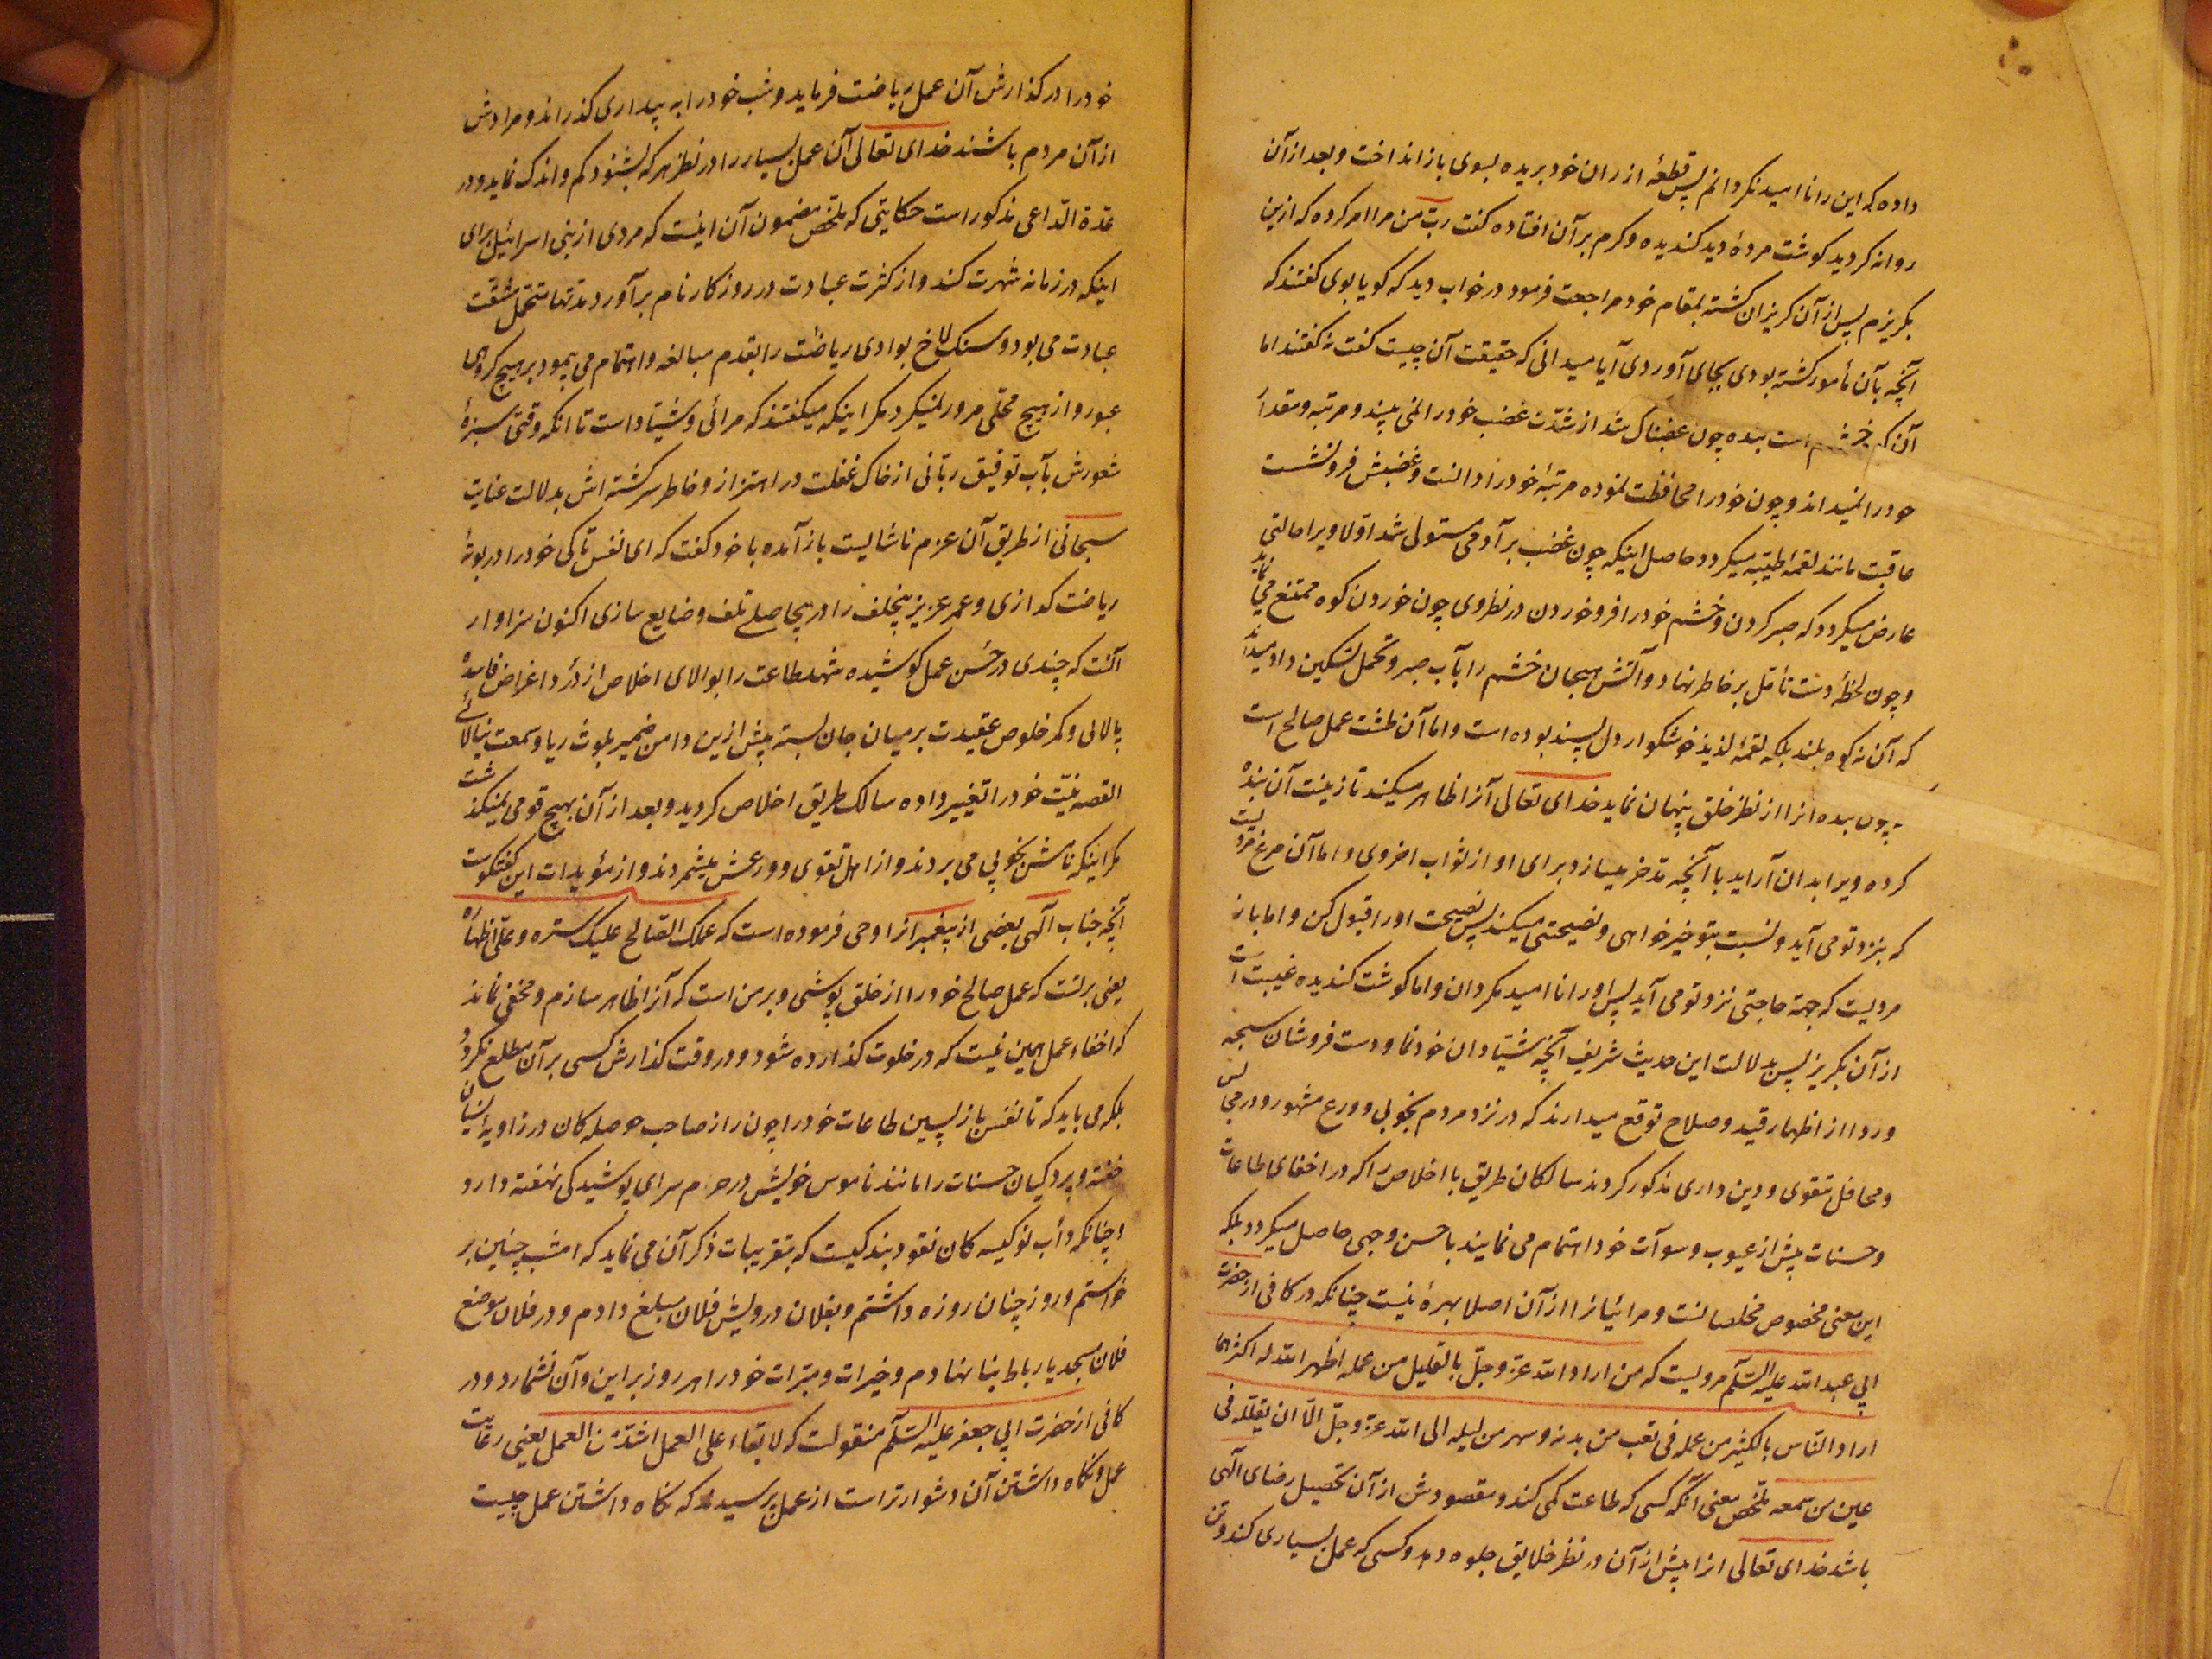 داده که این را ناامید نکردانم پس قطعهٔ از ران خود بریده بسوی باز انداخت و بعد از آن
روانه کردید کوشت مردهٔ دید کندیده و کرم بر آن افتاده کفت ربّ من مرا امر کرده که ازین
بکریزم پس از آن کریزان کشته بمقام خود مراجعت فرمود در خواب دید که کویا بوی کفتند که
آنچه بآن مأمور کشته بودی بجای آوردی آیا میدانی که حقیقت آن چیست کفت نه کفتند اما
آن کوه خشم است بنده چون غضبناک شد از شدّت غضب خود را نمی بیند و مرتبه و مقدار
خود را نمیداند و چون خود را محافظت نموده مرتبهٔ خود را دانست و غضبش فرو نشست
عاقبت مانند لقمهٔ طیّبه میکردد حاصل اینکه چون غضب بر آدمی مستولی شد اوّلا ویرا حالتی
عارض میکردد که صبر کردن و خشم خود را فرو خوردن در نظر وی چون خوردن کوه ممتنع می نماید
و چون لحظهٔ دست تأمّل بر خاطر نهاد و آتش هیجان خشم را بآب صبر و تحمل تسکین داد میداند
که آن نه کوه بلند بلکه لقمهٔ لذیذ خوشکوار دل پسند بوده است و اما آن طشت عمل صالح است
چون بنده انرا از نظر خلق پنهان نماید خدای تعالی آنرا ظاهر میکند تا زینت آن بنده
کرده ویرا بدان آراید با آنچه مدّخر میسازد برای او از ثواب اخروی و اما آن مرغ مردیست
که بنزد تو می آید و نسبت بتو خیر خواهی و نصیحتی میکند پس نصیحت او را قبول کن و اما باز
مردیست که جهة حاجتی نزد تو می آید پس او را ناامید مکردان و اما کوشت کندیده غیبت است
از آن بکریز پس بدلالت این حدیث شریف آنچه شیّادان خودنما و دست فروشان سبحه
و ردا از اظهار قید و صلاح توقع میدارند که در نزد مردم بخوبی و ورع مشهور و در مجالس
و محافل بتقوی و دین داری مذکور کردند سالکان طریق با اخلاص را که در اخفای طاعات
و حسنات بیش از عیوب و سوآت خود اهتمام می نمایند باحسن وجهی حاصل میکردد بلکه
این معنی مخصوص مخلصانست و مرائیانرا از آن اصلا بهرهٔ نیست چنانکه در کافی از حضرت
ابی عبد الله علیه السّلم مرویست که من اراد الله عزّ و جلّ بالقلیل من عمله اظهر الله له اکثر مما
اراد النّاس بالکثیر من عمله فی تعب من بدنه و سهر من لیله ابی الله عزّ و جلّ الّا ان یقلّله فی
عین من سمعه ملخّص معنی آنکه کسی که طاعت کمی کند و مقصودش از آن تحصیل رضای الهی
باشد خدای تعالی انرا بیش از آن در نظر خلایق جلوه دهد و کسی که عمل بسیاری کند و تن
خود را در کذارش آن عمل ریاضت فرماید و شب خود را به بیداری کذراند و مرادش
از آن مردم باشند خدای تعالی آن عمل بسیار را در نظر هر که بشنود کم و اندک نماید و در
عدة الدّاعی مذکور است حکایتی که ملخّص مضمون آن اینست که مردی از بنی اسرائیل برای
اینکه در زمانه شهرت کند و از کثرت عبادت در روزکار نام برآورد مدتها متحمل مشقّت
عبادت می بود و سنک لاخ بوادی ریاضت را بقدم مبالغه و اهتمام می پیمود بر هیچ کروهی
عبور و از هیچ محلّی مرور نمیکرد مکر اینکه میکفتند که مرائی و شیّاد است تا آنکه وقتی سبزهٔ
شعورش بآب توفیق ربّانی از خاک غفلت در اهتزاز و خاطر سرکشته اش بدلالت عنایت
سبحانی از طریق آن عزم ناشایست باز آمده با خود کفت که ای نفس تا کی خود را در بوتهٔ
ریاضت کدازی و عمر عزیز بیخلف را در بیحاصلی تلف و ضایع سازی اکنون سزاوار
آنست که چندی در حسن عمل کوشیده شهد طاعت را بوالای اخلاص از دُرد اغراض فاسده
پالائی و کمر خلوص عقیدت بر میان جان بسته بیش ازین دامن ضمیر بلوث ریا و سمعت نیالائی
القصه نیّت خود را تغییر داده سالک طریق اخلاص کردید و بعد از آن بهیچ قومی نمیکذشت
مکر اینکه نامش بخوبی می بردند و از اهل تقوی و ورعش میشمردند و از مؤیدات این کفتکوست
آنچه جناب الهی بعضی از پیغمبرانرا وحی فرموده است که عملک الصّالح علیک ستره و علیّ اظهاره
یعنی بر تست که عمل صالح خود را از خلق پوشی و بر من است که آنرا ظاهر سازم و مخفی نماند
که اخفاء عمل همین نیست که در خلوت کذارده شود و در وقت کذارش کسی بر آن مطلع نکردد
بلکه می باید که تا نفس باز پسین طاعات خود را چون راز صاحب حوصله کان در زاویهٔ نسیان
خفته و پردکیان حسنات را مانند ناموس خویش در حرم سرای پوشیدکی نهفته دارد
و چنانکه دأب نو کیسه کان نقود بندکیست که بتقریبات ذکر آن می نماید که امشب چنین بر
خواستم و روز چنان روزه داشتم و بفلان درویش فلان مبلغ دادم و در فلان موضع
فلان مسجد یا رباط بنا نهادم و خیرات و مبرّات خود را هر روز بر این و آن نشمارد و در
کافی از حضرت ابی جعفر علیه السّلم منقولست که لابقاء علی العمل اشدّ من العمل یعنی رعایت
عمل و نکاه داشتن آن دشوارتر است از عمل پرسیدند که نکاه داشتن عمل چیست